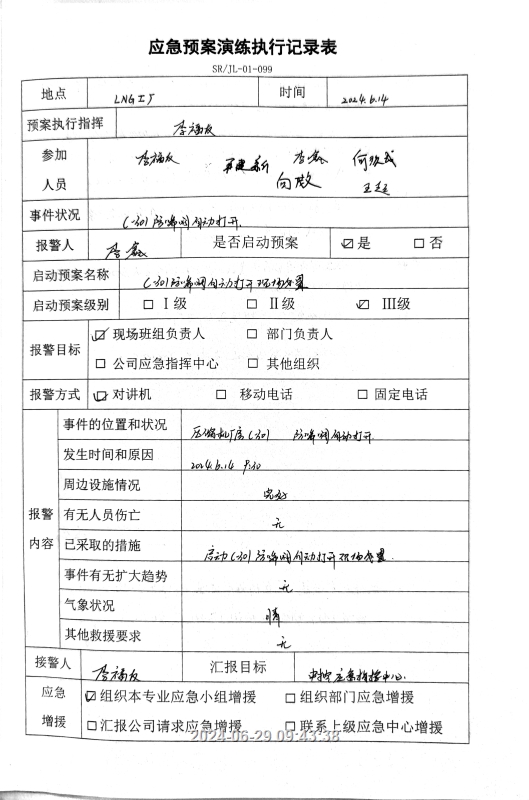 应急预案演练执行记录表
SR/JL-01-099
地点 LNG工厂 时间 2024.6.14
预案执行指挥 李福友
参加人员 李福友 李鑫
事件状况 C-301防喘阀自动打开.
报警人 李鑫 是否启动预案 ☑是 □否
启动预案名称 C-301防喘阀自动打开现场处置
启动预案级别 □Ⅰ级 □Ⅱ级 ☑Ⅲ级
报警目标 ☑现场班组负责人 □部门负责人
□公司应急指挥中心 □其他组织
报警方式 ☑对讲机 □移动电话 □固定电话
报警内容
事件的位置和状况 压缩机厂房C-301 防喘阀自动打开.
发生时间和原因 2024.6.14 9:30
周边设施情况 完好
有无人员伤亡 无
已采取的措施 启动C-301防喘阀自动打开现场处置.
事件有无扩大趋势 无
气象状况 晴
其他救援要求 无
接警人 李福友 汇报目标 中控应急指挥中心.
应急增援 ☑组织本专业应急小组增援 □组织部门应急增援
□汇报公司请求应急增援 □联系上级应急中心增援
2024-06-29 09:43:38